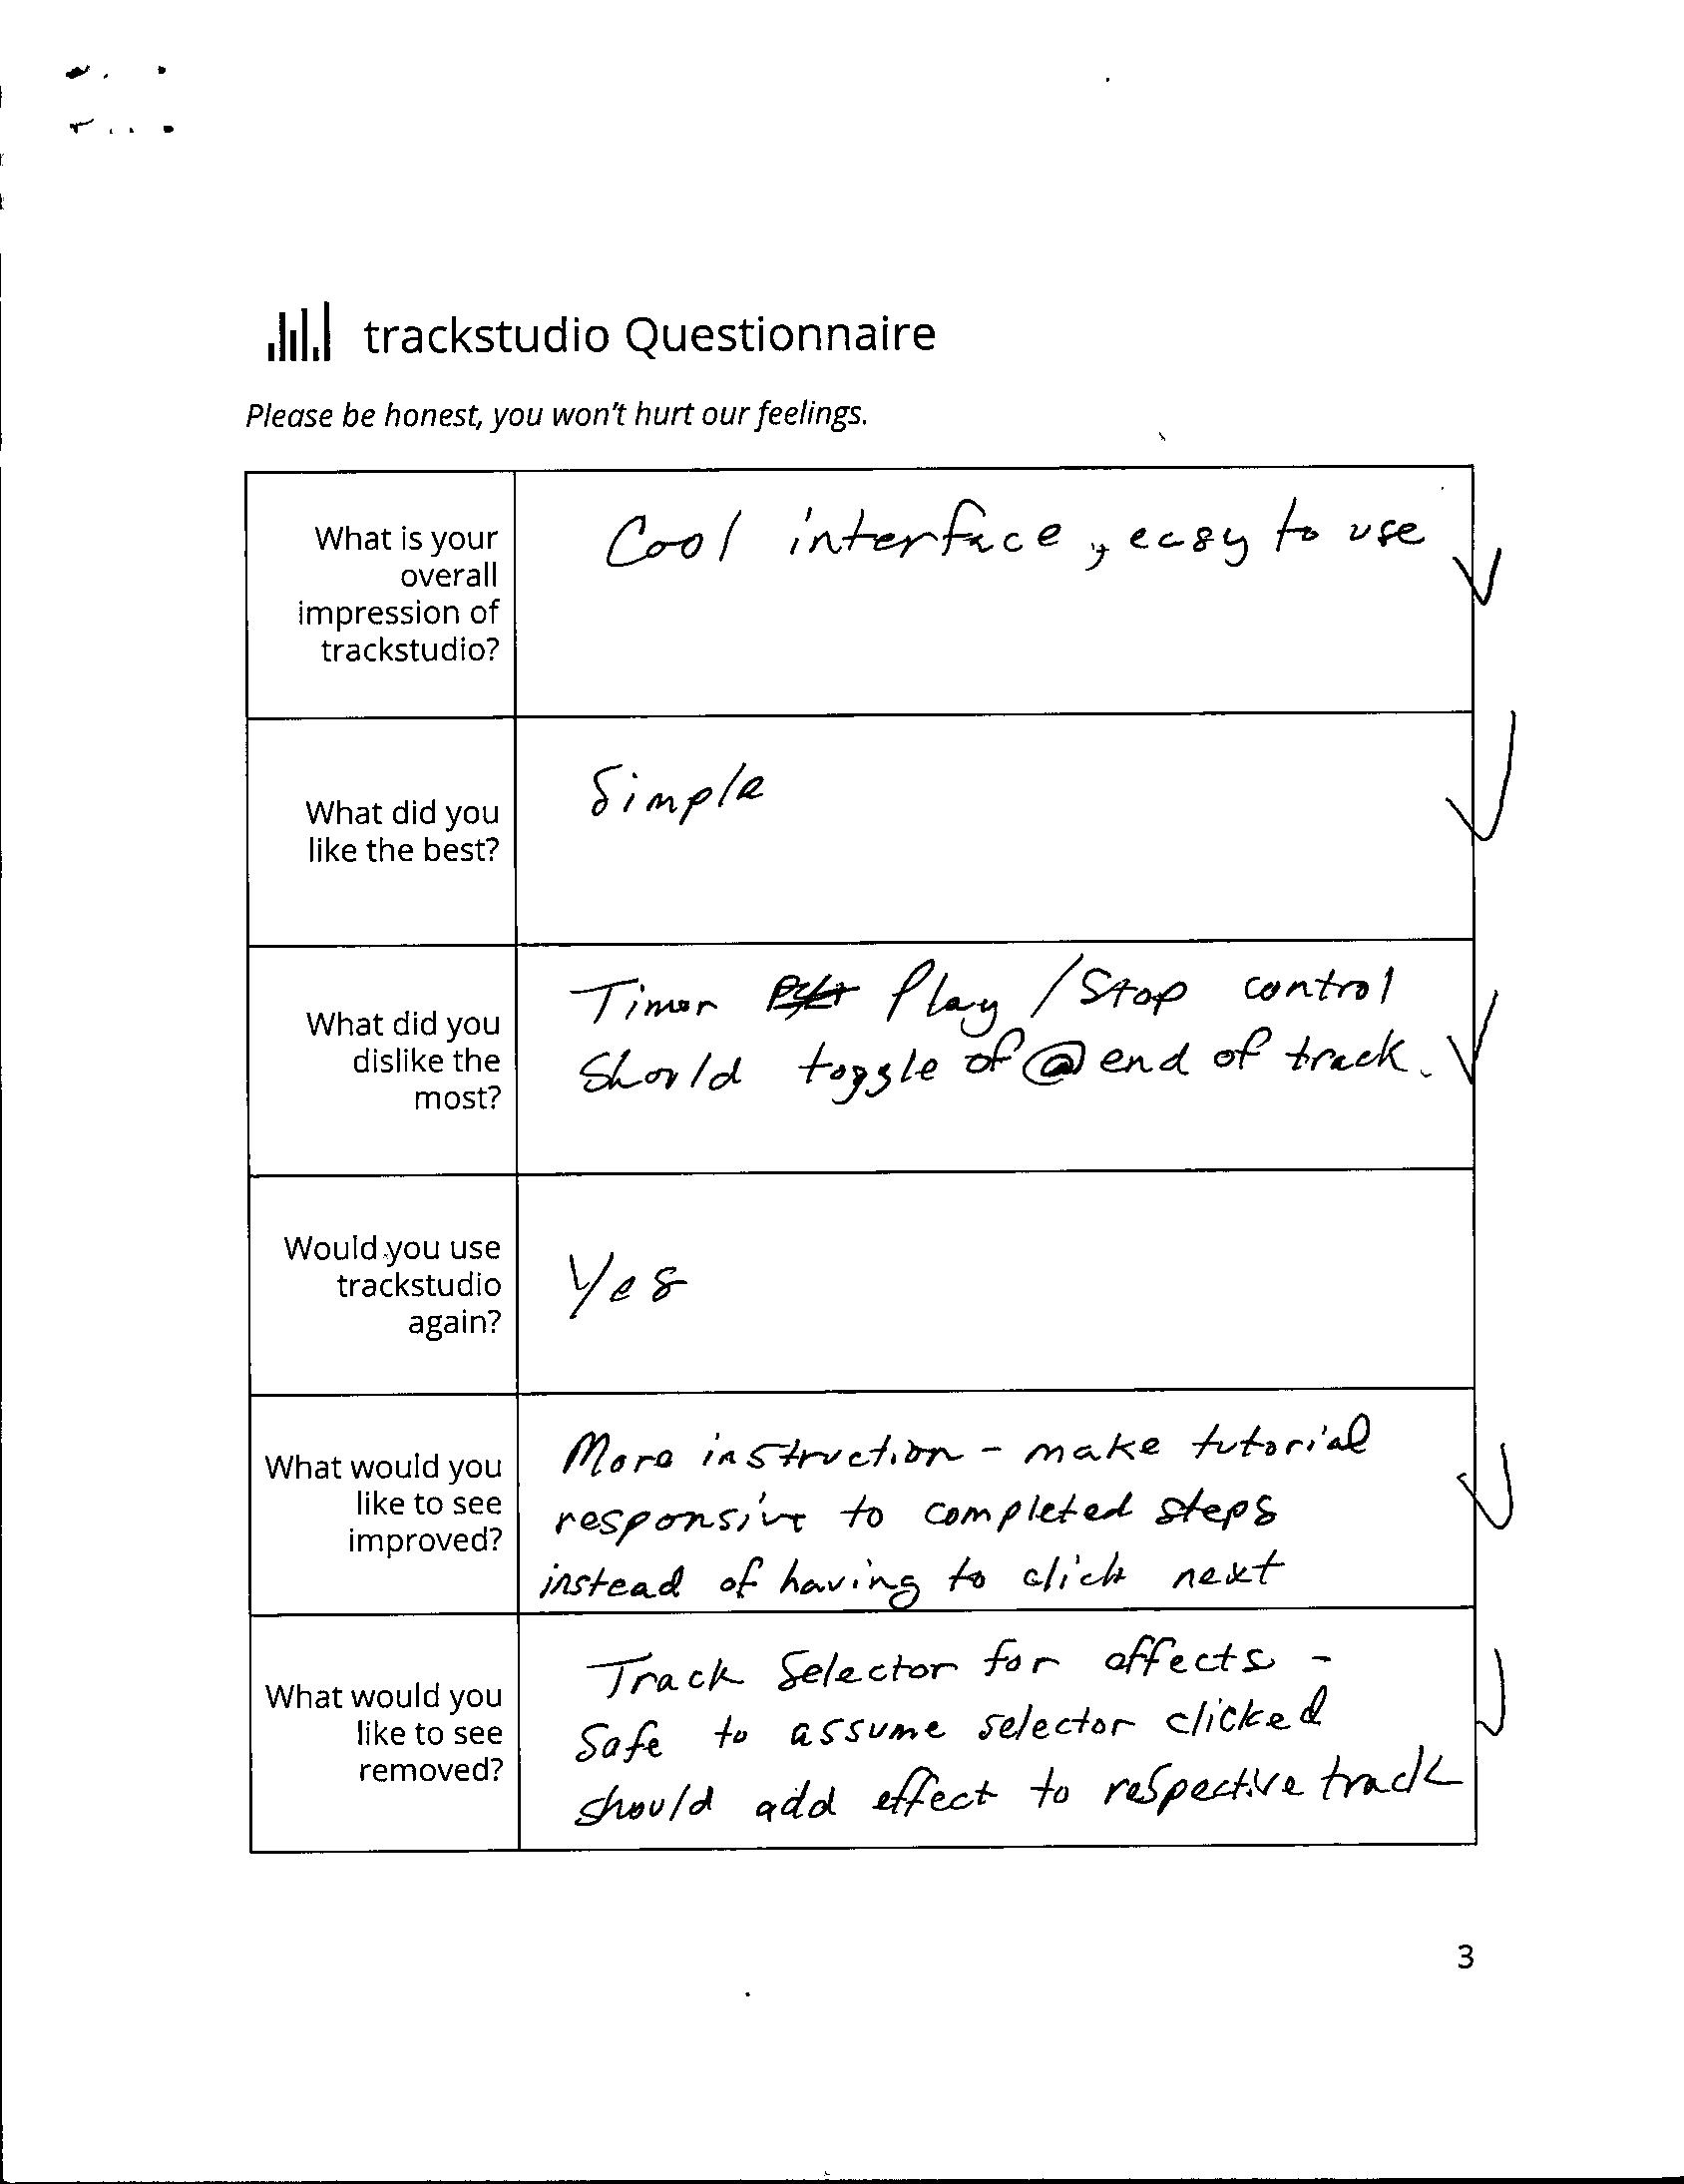 trackstudio Questionnaire
Please be honest, you won't hurt our feelings.
What is your
overall
impression of
trackstudio?
Cool interface, easy to use
What did you
like the best?
Simple
What did you
dislike the
most?
Timer Play / Stop control
Should toggle of @ end of track.
Would you use
trackstudio
again?
Yes
What would you
like to see
improved?
More instruction - make tutorial
responsive to completed steps
instead of having to click next
What would you
like to see
removed?
Track Selector for effects -
Safe to assume selector clicked
should add effect to respective track
3